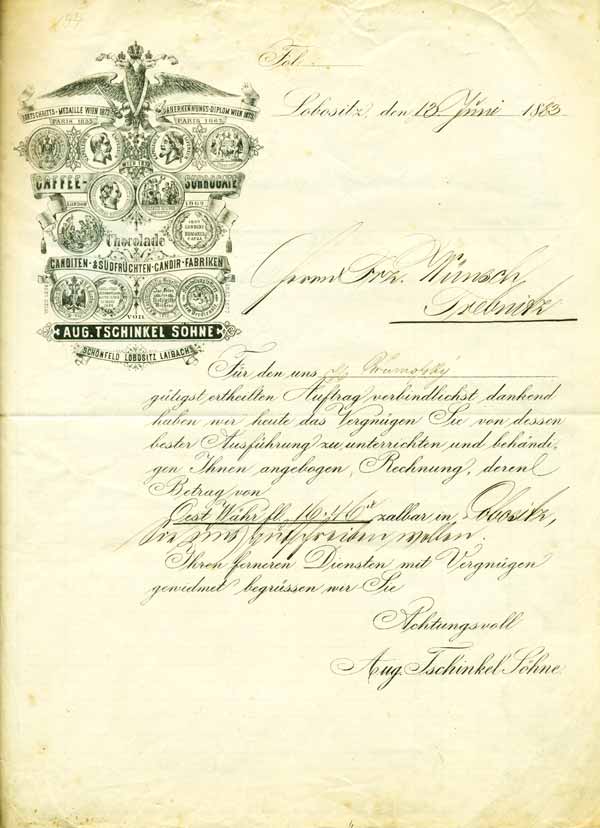 Fol.
Lobositz, den 13 Juni 1883
FORTSCHRITTS-MEDAILLE WIEN 1873
ANERKENNUNGS-DIPLOM WIEN 1873
PARIS 1855
PARIS 1867
CAFFEE-
SURROGATE
LONDON
1862
Chocolade
CANDITEN- & SÜDFRÜCHTEN-CANDIR-FABRIKEN
VON
AUG. TSCHINKEL SÖHNE
SCHÖNFELD LOBOSITZ LAIBACH
Herrn Frz. Wünsch
Trebnitz
Für den uns
gütigst ertheilten Auftrag verbindlichst dankend
haben wir heute das Vergnügen Sie von dessen
bester Ausführung zu unterrichten und behändi-
gen Ihnen angebogen, Rechnung, deren
Betrag von
Oest. Währ. fl. 16.46 zalbar in Lobositz,
Sie uns gutschreiben wollen.
Ihren ferneren Diensten mit Vergnügen
gewidmet begrüssen wir Sie
Achtungsvoll
Aug. Tschinkel Söhne.